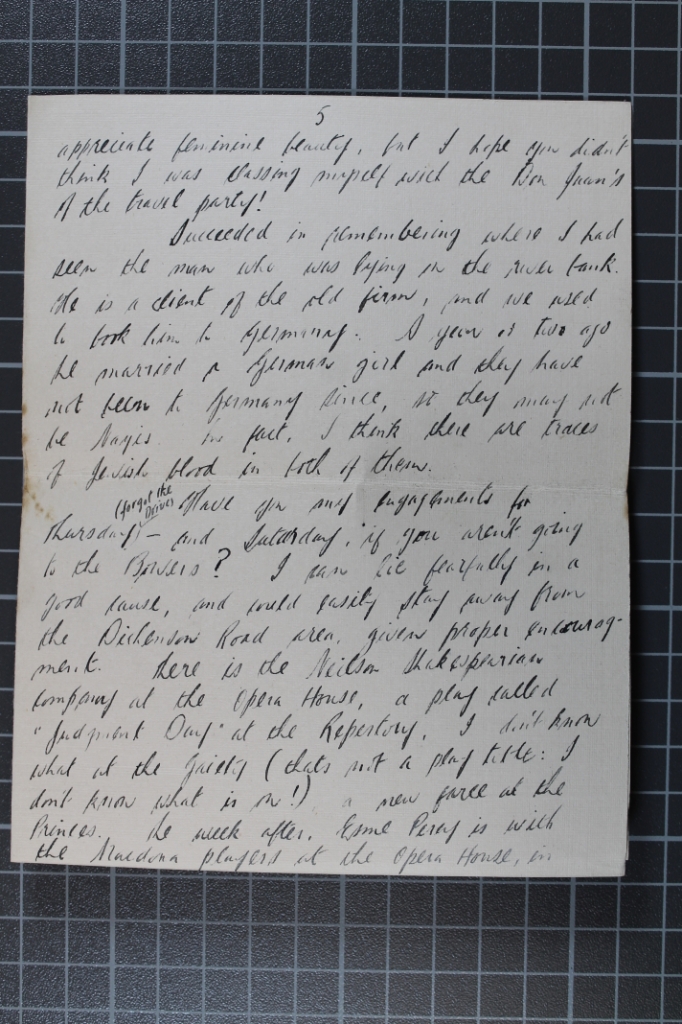 5
appreciate feminine beauty, but I hope you didn't
think I was classing myself with the Don Juan's
of the travel party!
Succeeded in remembering where I had
seen the man who was lying on the river bank.
He is a client of the old firm, and we used
to book him to Germany. A year or two ago
he married a German girl and they have
not been to Germany since, so they may not
be Nazis. In fact, I think there are traces
of Jewish blood in both of them.
(forgot the
Drives Have you any engagements for
Thursday) – and Saturday, if you aren't going
to the Bowers? I can lie fearfully in a
good cause, and could easily stay away from
the Dickenson Road area, given proper encourag-
ment. There is the Neilson Shakespearian
company at the Opera House, a play called
"Judgment Day" at the Repertory, I don't know
what at the Gaiety (thats not a play title: I
don't know what is on!) a new farce at the
Princes. The week after, Esme Percy is with
the Macdona players at the Opera House, in